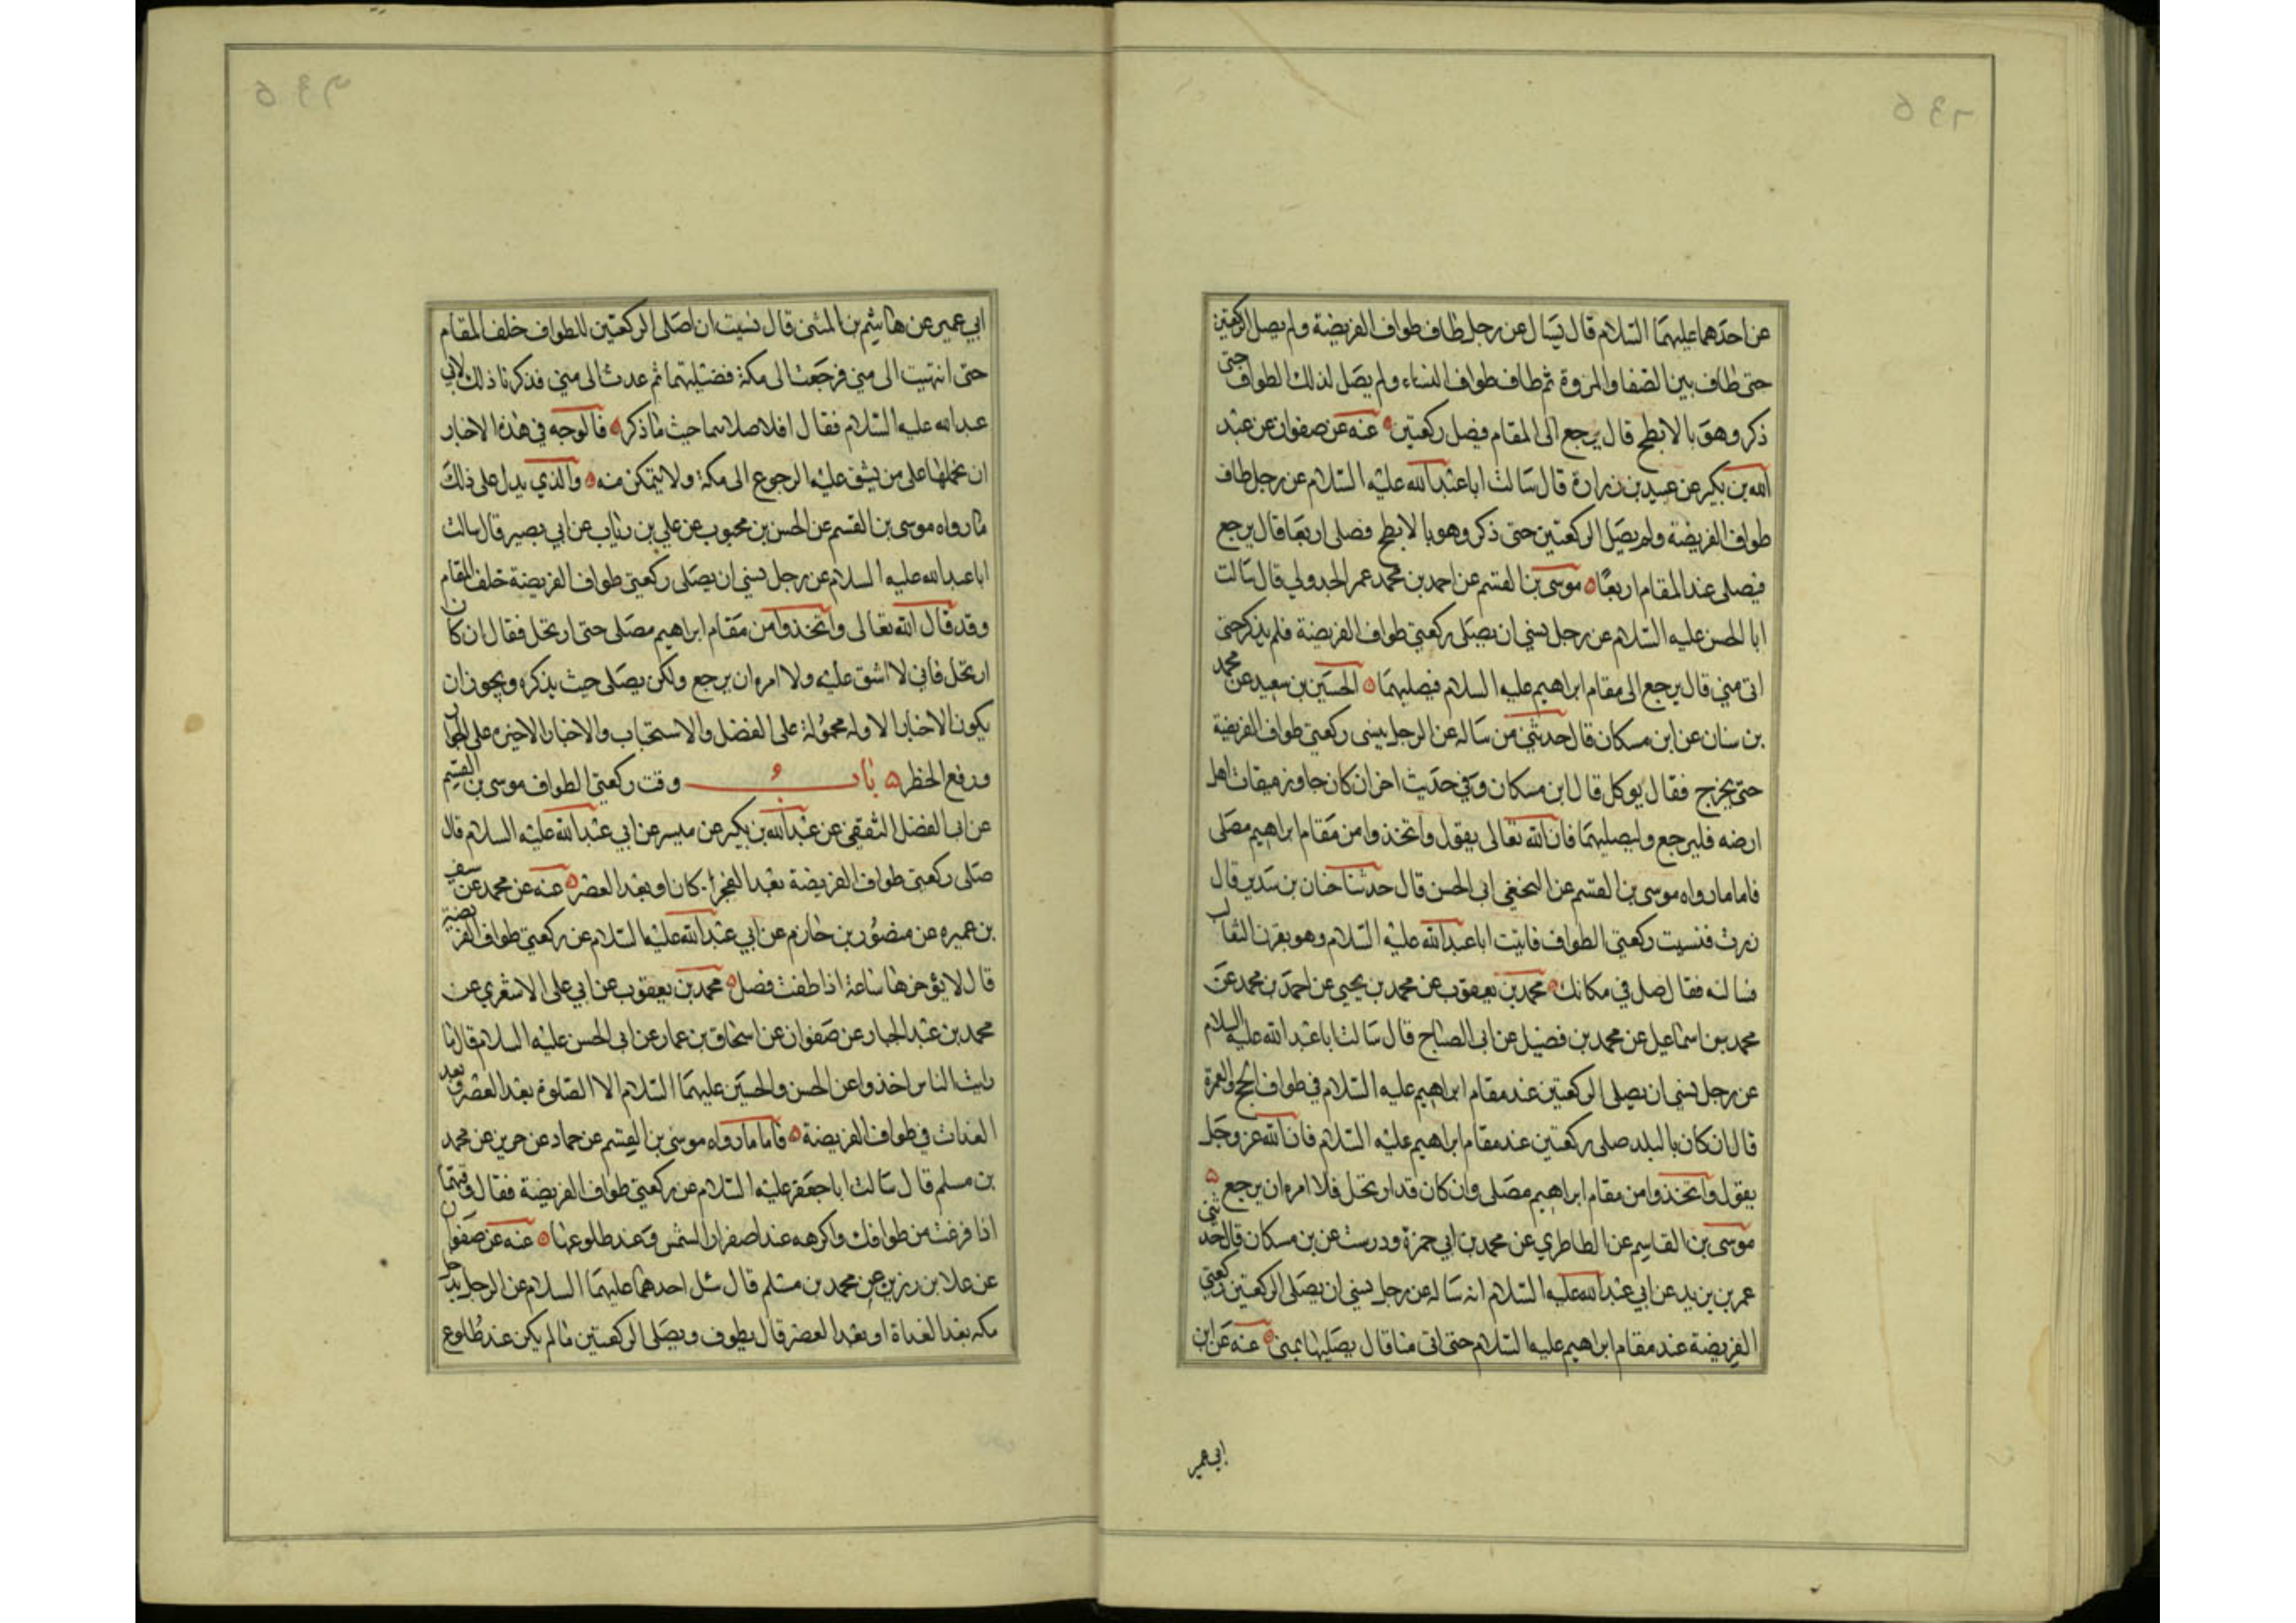 عن احدهما عليهما السلام قال يسال عن رجل طاف طواف الفريضة ولم يصل الركعتين
حتى طاف بين الصفا والمروة ثم طاف طواف النساء ولم يصل لذلك الطواف حتى
ذكر وهو بالابطح قال يرجع الى المقام فيصل ركعتين ه عنه عن صفوان عن عبد
الله بن بكير عن عبيد بن زرارة قال سالت ابا عبد الله عليه السلام عن رجل طاف
طواف الفريضة ولم يصل الركعتين حتى ذكر وهو بالابطح فصلى اربعا قال يرجع
فيصلى عند المقام اربعا ه موسى بن القسم عن احمد بن محمد عمر الجدولي قال سالت
ابا الحسن عليه السلام عن رجل نسي ان يصلى ركعتي طواف الفريضة فلم يذكر حتى
اتى منى قال يرجع الى مقام ابراهيم عليه السلام فيصليهما ه الحسين بن سعيد عن محمد
بن سنان عن ابن مسكان قال حدثني من ساله عن الرجل ينسى ركعتي طواف الفريضة
حتى يخرج فقال يوكل قال ابن مسكان وفي حديث اخر ان كان جاوز ميقات اهل
ارضه فليرجع وليصليهما فان الله تعالى يقول واتخذوا من مقام ابراهيم مصلى
فاما ما رواه موسى بن القسم عن النخعي ابى الحسن قال حدثنا حنان بن سدير قال
زرت فنسيت ركعتي الطواف فاتيت ابا عبد الله عليه السلام وهو بقرن الثعالب
فسالته فقال صل في مكانك ه محمد بن يعقوب عن محمد بن يحيى عن احمد بن محمد عن
محمد بن اسماعيل عن محمد بن فضيل عن ابى الصباح قال سالت ابا عبد الله عليه السلام
عن رجل نسي ان يصلى الركعتين عند مقام ابراهيم عليه السلام في طواف الحج والعمرة
قال ان كان بالبلد صلى ركعتين عند مقام ابراهيم عليه السلام فان الله عز وجل
يقول واتخذوا من مقام ابراهيم مصلى وان كان قد ارتحل فلا امره ان يرجع ه
موسى بن القاسم عن الطاطري عن محمد بن ابي حمزة ودرست عن بن مسكان قال حدثني
عمر بن يزيد عن ابي عبد الله عليه السلام انه ساله عن رجل نسي ان يصلى الركعتين ركعتي
الفريضة عند مقام ابراهيم عليه السلام حتى اتى منا قال يصليها بمنى ه عنه عن ابن
ابي عمير
ابي عمير عن هاشم بن المثنى قال نسيت ان اصلى الركعتين للطواف خلف المقام
حتى انتهيت الى منى فرجعت الى مكة فصليتهما ثم عدت الى منى فذكرنا ذلك لابي
عبد الله عليه السلام فقال افلا صلاهما حيث ما ذكر ه فالوجه في هذه الاخبار
ان نحملها على من يشق عليه الرجوع الى مكة ولا يتمكن منه ه والذي يدل على ذلك
ما رواه موسى بن القسم عن الحسن بن محبوب عن علي بن رئاب عن ابي بصير قال سالت
ابا عبد الله عليه السلام عن رجل نسي ان يصلى ركعتي طواف الفريضة خلف المقام
وقد قال الله تعالى واتخذوا من مقام ابراهيم مصلى حتى ارتحل فقال ان كان
ارتحل فاني لا اشق عليه ولا امره ان يرجع ولكن يصلى حيث يذكره ويجوز ان
يكون الاخبار الاوله محمولة على الفضل والاستحباب والاخبار الاخيره على الجواز
ورفع الحظر ه باب وقت ركعتي الطواف موسى بن القسم
عن ابى الفضل الثقفي عن عبد الله بن بكير عن ميسر عن ابي عبد الله عليه السلام قال
صلى ركعتي طواف الفريضة بعد الفجر كان او بعد العصر ه عنه عن محمد عن سيف
بن عميره عن منصور بن حازم عن ابي عبد الله عليه السلام عن ركعتي طواف الفريضة
قال لا يؤخرها ساعة اذا طفت فصل ه محمد بن يعقوب عن ابي على الاشعري عن
محمد بن عبد الجبار عن صفوان عن اسحاق بن عمار عن ابى الحسن عليه السلام قال ما
رايت الناس اخذوا عن الحسن والحسين عليهما السلام الا الصلوة بعد العصر وبعد
الغداة في طواف الفريضة ه فاما ما رواه موسى بن القسم عن حماد عن حريز عن محمد
بن مسلم قال سالت ابا جعفر عليه السلام عن ركعتي طواف الفريضة فقال وقتهما
اذا فرغت من طوافك واكرهه عند اصفرار الشمس وعند طلوعها ه عنه عن صفوان
عن علا بن رزين عن محمد بن مسلم قال سئل احدهما عليهما السلام عن الرجل يدخل
مكه بعد الغداة او بعد العصر قال يطوف ويصلى الركعتين ما لم يكن عند طلوع